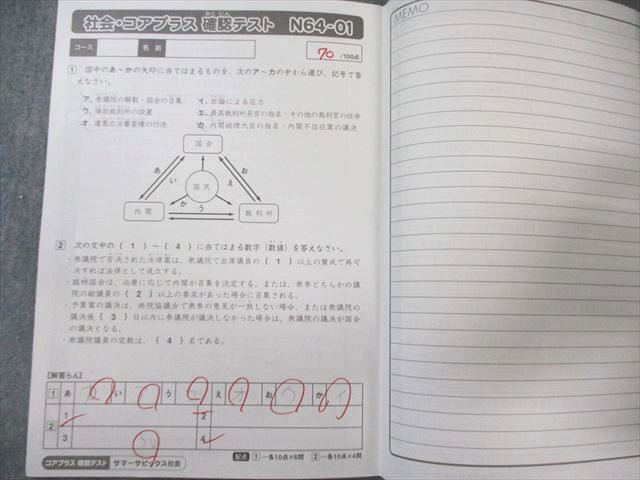 社会・コアプラス 確認テスト N64-01
MEMO
コース 名前 70 /100点
1 図中のあ〜かの矢印に当てはまるものを、次のア〜カの中から選び、記号で答えなさい。
ア、衆議院の解散・国会の召集 イ、世論による圧力
ウ、弾劾裁判所の設置 エ、最高裁判所長官の指名・その他の裁判官の任命
オ、違憲立法審査権の行使 カ、内閣総理大臣の指名・内閣不信任案の議決
国会
あ い お え
国民
か う
内閣 裁判所
2 次の文中の( 1 )〜( 4 )に当てはまる数字(数値)を答えなさい。
・衆議院で否決された法律案は、衆議院で出席議員の( 1 )以上の賛成で再可
決すれば法律として成立する。
・臨時国会は、必要に応じて内閣が召集を決定する。または、衆参どちらかの議
院の総議員の( 2 )以上の要求があった場合に召集される。
・予算案の議決は、両院協議会で衆参の意見が一致しない場合、または衆議院の
議決後( 3 )日以内に参議院が議決しなかった場合は、衆議院の議決が国会
の議決となる。
・衆議院議員の定数は、( 4 )名である。
[解答らん]
1 あ い う え お か
2 1 2
3 30 4
コアプラス 確認テスト サマーサピックス社会 配点 1…各10点×6問 2…各10点×4問